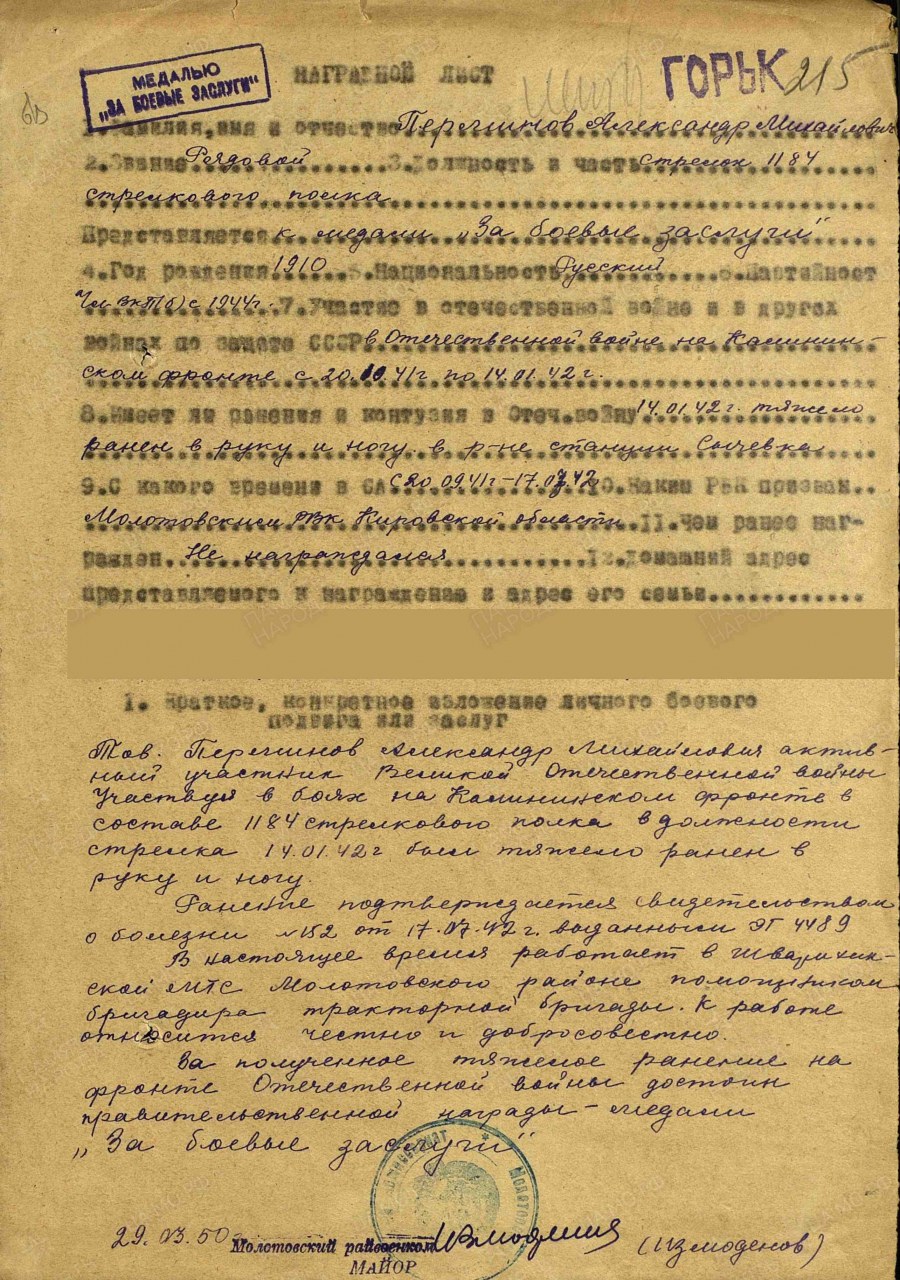 МЕДАЛЬЮ
„ЗА БОЕВЫЕ ЗАСЛУГИ“
НАГРАДНОЙ ЛИСТ
ГОРЬК 215
1. Фамилия, имя и отчество Перминов Александр Михайлович
2. Звание Рядовой 3. Должность и часть стрелок 1184
стрелкового полка
Представляется к медали „За боевые заслуги“
4. Год рождения 1910 5. Национальность Русский 6. Партийност
Чл. ВКП(б) с 1944г. 7. Участие в отечественной войне и в других
войнах по защите СССР в Отечественной войне на Калинин-
ском фронте с 20.10.41г по 14.01.42г.
8. Имеет ли ранения и контузия в Отеч.войну 14.01.42г. тяжело
ранен в руку и ногу в р-не станции Сычевка
9. С какого времени в СА с 20.09.41г-17.07.42 10. Каким РВК призван..
Молотовским РВК Кировской области. 11. Чем ранее наг-
ражден. Не награждался 12. Домашний адрес
представляемого к награждение и адрес его семьи
1. Краткое, конкретное изложение личного боевого
подвига или заслуг
Тов. Перминов Александр Михайлович актив-
ный участник Великой Отечественной войны
Участвуя в боях на Калининском фронте в
составе 1184 стрелкового полка в должности
стрелка 14.01.42г был тяжело ранен в
руку и ногу.
Ранение подтверждается свидетельством
о болезни №152 от 17.07.42г. выданным ЭГ 4489
В настоящее время работает в Шварихин-
ской МТС Молотовского районе помощником
бригадира тракторной бригады. К работе
относится честно и добросовестно.
За полученное тяжелое ранение на
фронте Отечественной войны достоин
правительственной награды - медали
„За боевые заслуги“
29.03.50 Молотовский райвоенком (Измоденов)
МАЙОР